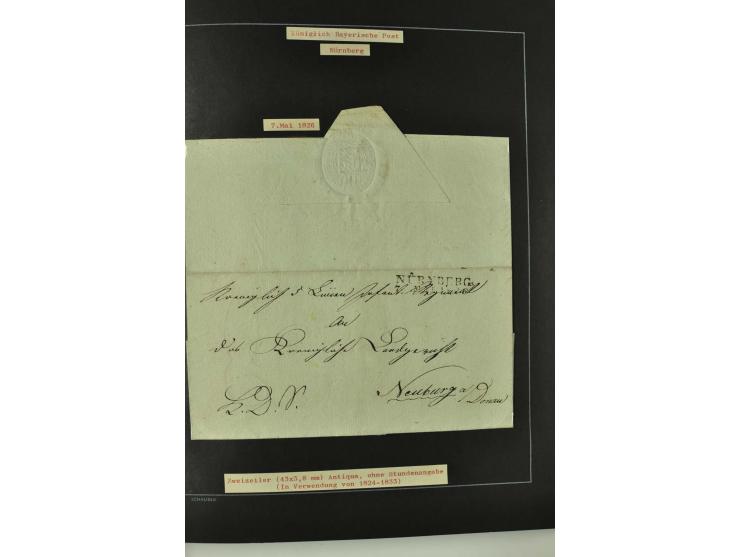 Königlich Bayerische Post
Nürnberg
7.Mai 1826
NÜRNBERG
Koeniglich 5 Linien Infant. Regiment
An
das Koenigliche Landgericht
K. D. S.
Neuburg a/
Donau
Zweizeiler (43x3,8 mm) Antiqua, ohne Stundenangabe
(In Verwendung von 1824-1833)
SCHAUBEK